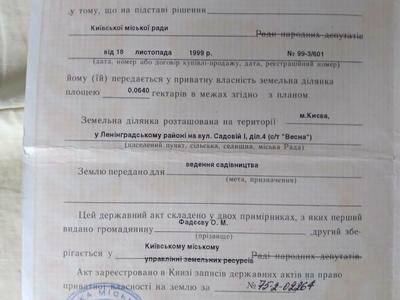 , у тому, що на підставі рішення
Київської міської ради Ради народних депутатів
від 18 листопада 1999 р. № 99-3/601
(дата, номер або договір купівлі-продажу, дата, реєстраційний номер)
йому (їй) передається у приватну власність земельна ділянка
площею 0,0640 гектарів в межах згідно з планом.
Земельна ділянка розташована на території м.Києва,
у Ленінградському районі на вул. Садовій І, діл.4 (с/т "Весна")
(населений пункт, сільська, селищна, міська Рада)
ведення садівництва
Землю передано для
(мета, призначення)
Цей державний акт складено у двох примірниках, з яких перший
Фадєєву О. М.
видано громадянину , другий збе-
(прізвище)
Київському міському
рігається у управлінні земельних ресурсів Раді народних депутатів.
Акт зареєстровано в Книзі записів державних актів на право
приватної власності на землю за № 75-2-02264
КА МІСЬ